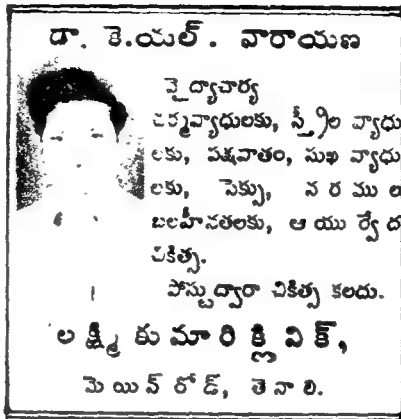 డా. కె.యల్. నారాయణ
వైద్యాచార్య
చర్మవ్యాధులకు, స్త్రీల వ్యాధు
లకు, పక్షవాతం, సుఖ వ్యాధు
లకు, సెక్సు, నరముల
బలహీనతలకు, ఆయుర్వేద
చికిత్స.
పోస్టుద్వారా చికిత్స కలదు.
లక్ష్మీకుమారి క్లినిక్,
మెయిన్ రోడ్, తెనాలి.